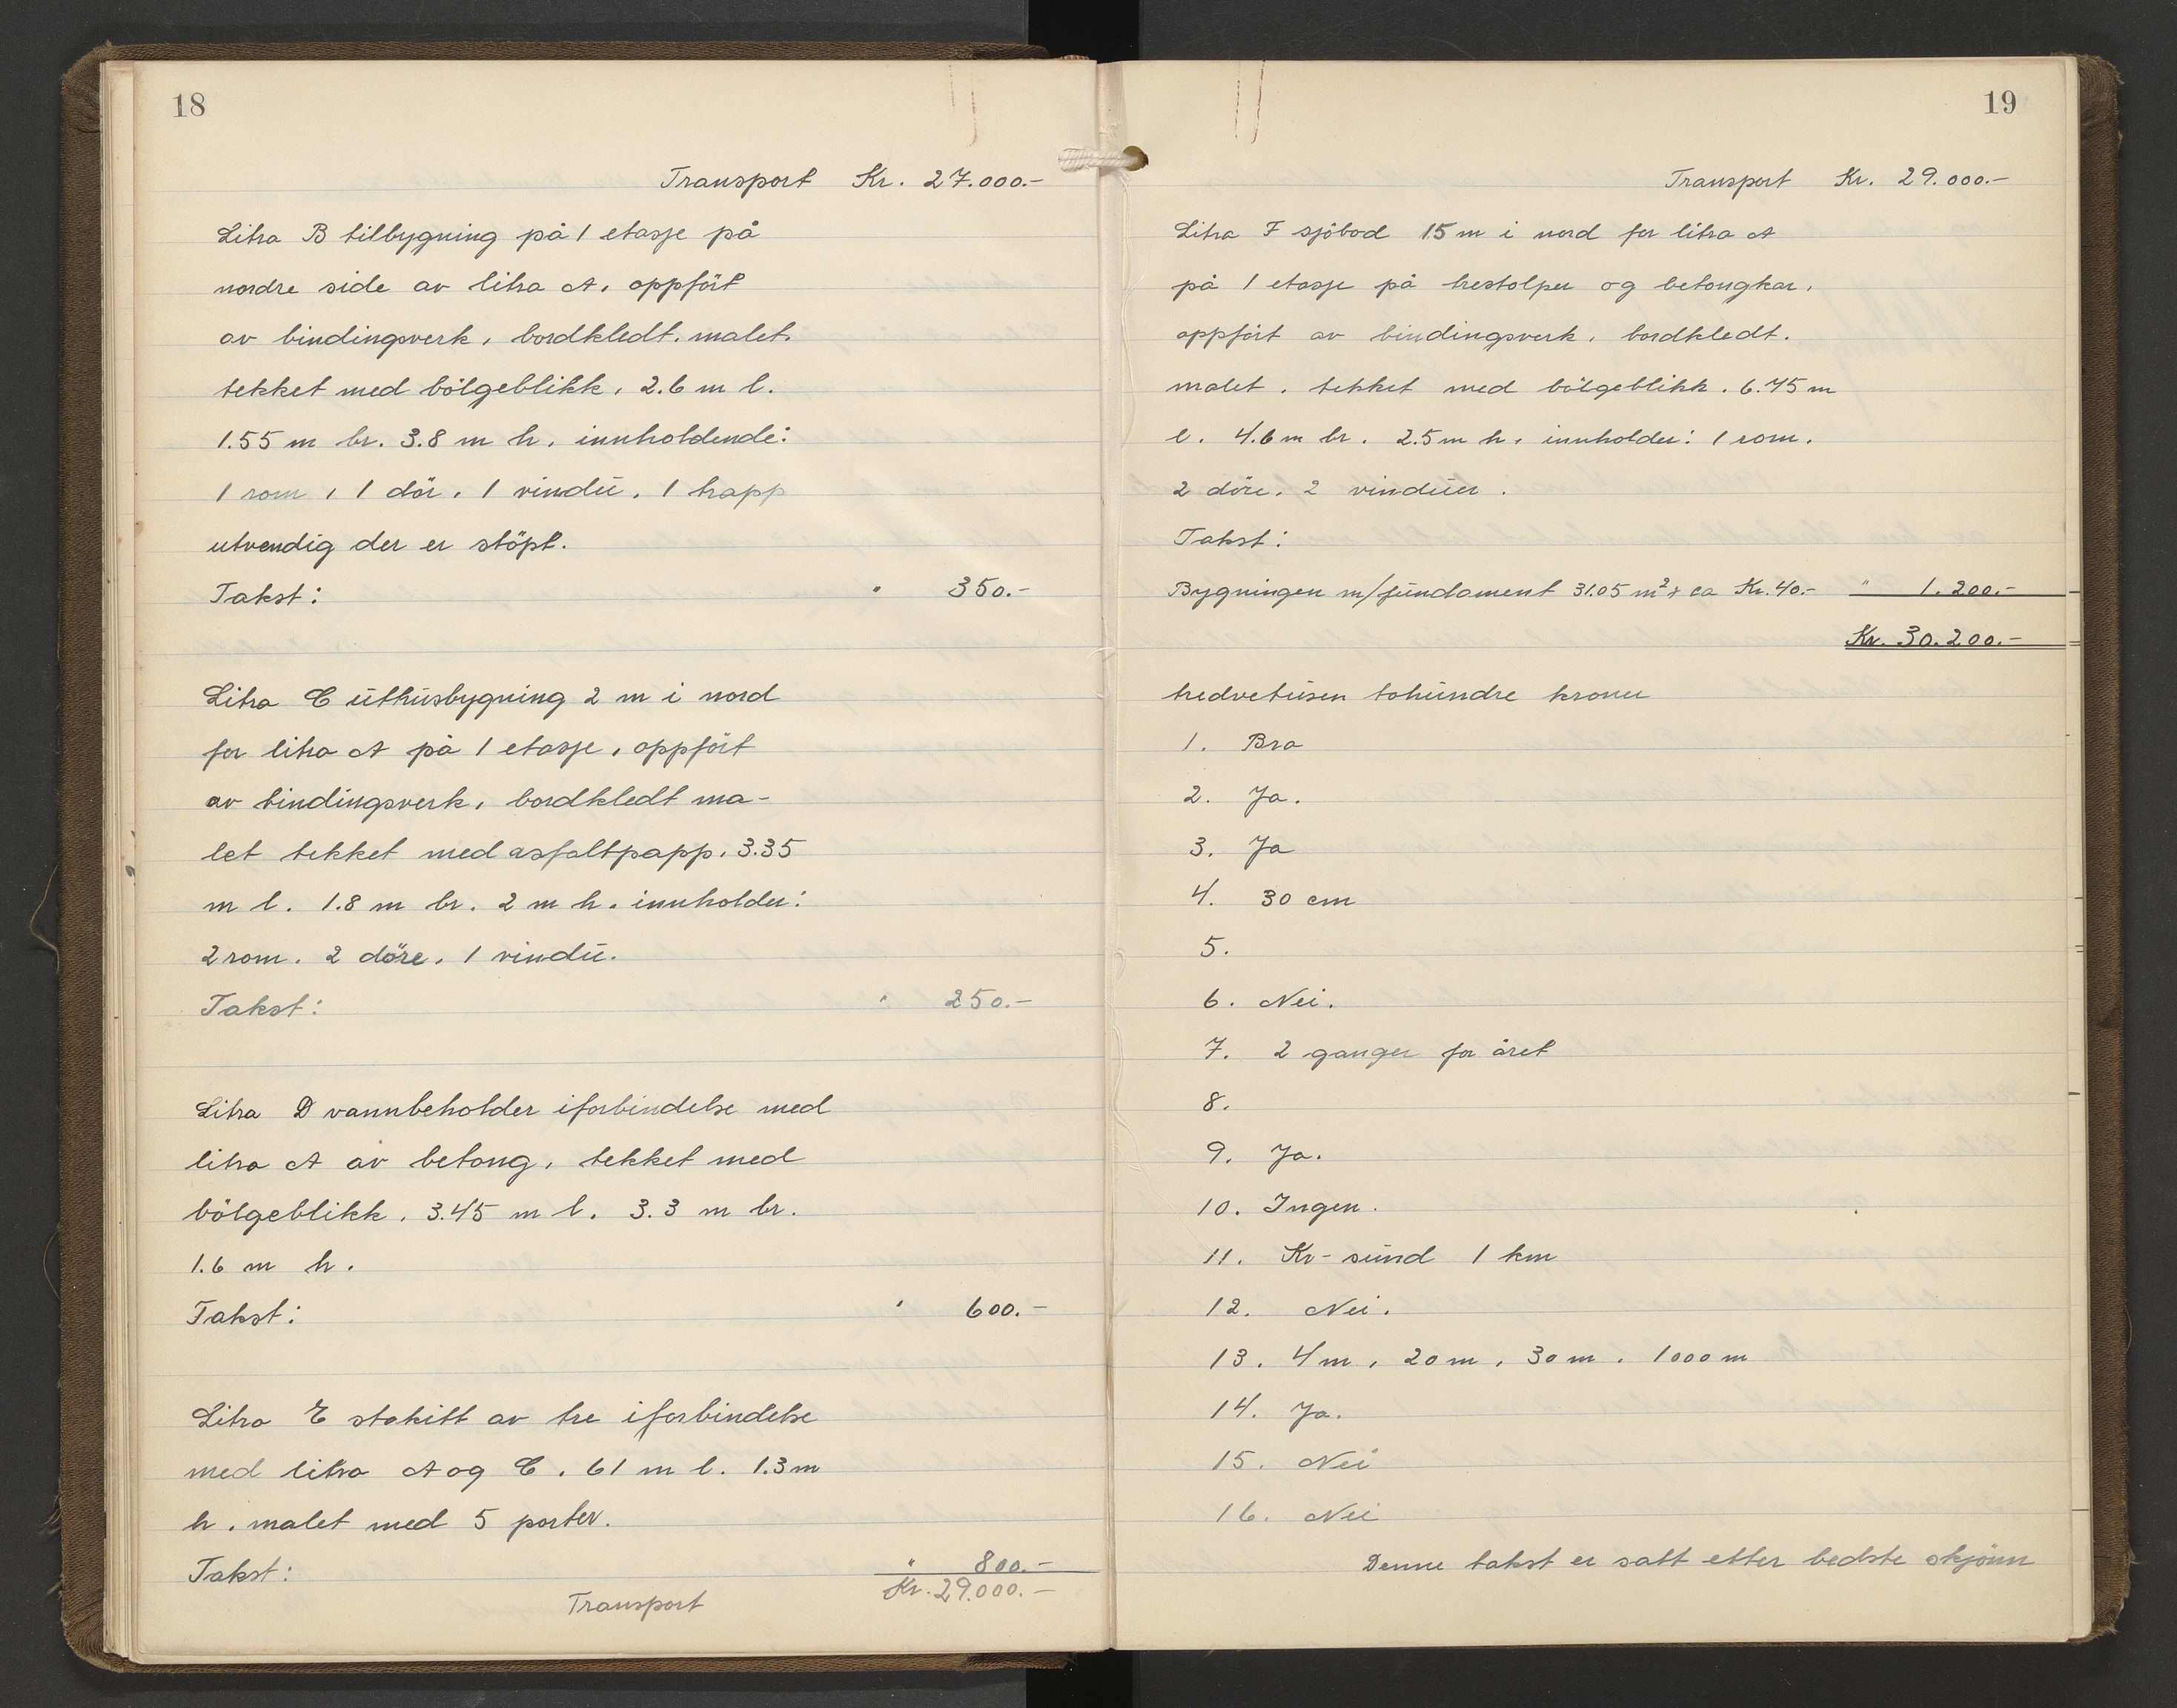 18
Transport Kr. 27.000.-
Litra B tilbygning på 1 etasje på
nordre side av litra A, oppfört
av bindingsverk, bordkledt, malet,
tekket med bölgeblikk, 2.6 m l.
1.55 m br. 3.8 m h, innholdende:
1 rom, 1 dör, 1 vindu, 1 trapp
utvendig der er stöpt.
Takst: " 350.-
Litra C uthusbygning 2 m i nord
for litra A på 1 etasje, oppfört
av bindingsverk, bordkledt ma-
let tekket med asfaltpapp, 3.35
m l. 1.8 m br. 2 m h. innholder:
2 rom. 2 döre, 1 vindu.
Takst: " 250.-
Litra D vannbeholder iforbindelse med
litra A av betong, tekket med
bölgeblikk, 3.45 m l. 3.3 m br.
1.6 m h.
Takst: " 600.-
Litra E stakitt av tre iforbindelse
med litra A og C. 61 m l. 1.3 m
h. malet med 5 porter.
Takst: " 800.-
Transport Kr. 29.000.-
19
Transport Kr. 29.000.-
Litra F sjöbod 15 m i nord for litra A
på 1 etasje på trestolper og betongkar,
oppfört av bindingsverk, bordkledt.
malet, tekket med bölgeblikk. 6.75 m
l. 4.6 m br. 2.5 m h, innholder: 1 rom.
2 döre, 2 vinduer.
Takst:
Bygningen m/fundament 31.05 m² x ca Kr. 40.- " 1.200.-
Kr. 30.200.-
tredvetusen tohundre kroner
1. Bra
2. Ja.
3. Ja
4. 30 cm
5.
6. Nei.
7. 2 ganger for året
8.
9. Ja.
10. Ingen.
11. Kr-sund 1 km
12. Nei.
13. 4 m, 20 m, 30 m, 1000 m
14. Ja.
15. Nei
16. Nei
Denne takst er satt etter bedste skjönn